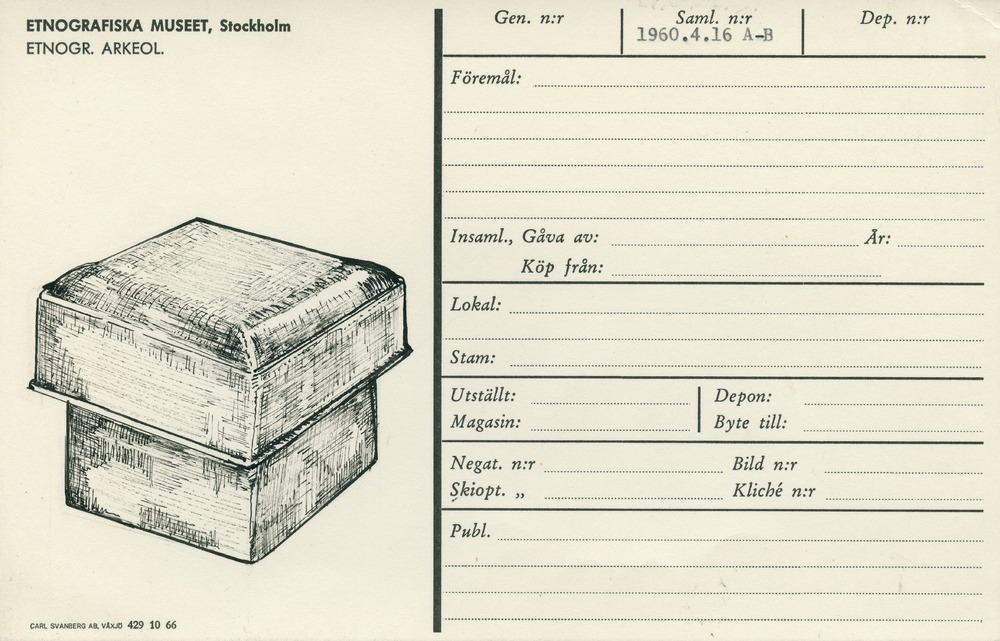 ETNOGRAFISKA MUSEET, Stockholm
ETNOGR. ARKEOL.
CARL SVANBERG AB, VÄXJÖ 429 10 66
Gen. n:r
Saml. n:r
1960.4.16 A-B
Dep. n:r
Föremål:
Insaml., Gåva av: År:
Köp från:
Lokal:
Stam:
Utställt: Depon:
Magasin: Byte till:
Negat. n:r Bild n:r
Skiopt. „ Kliché n:r
Publ.